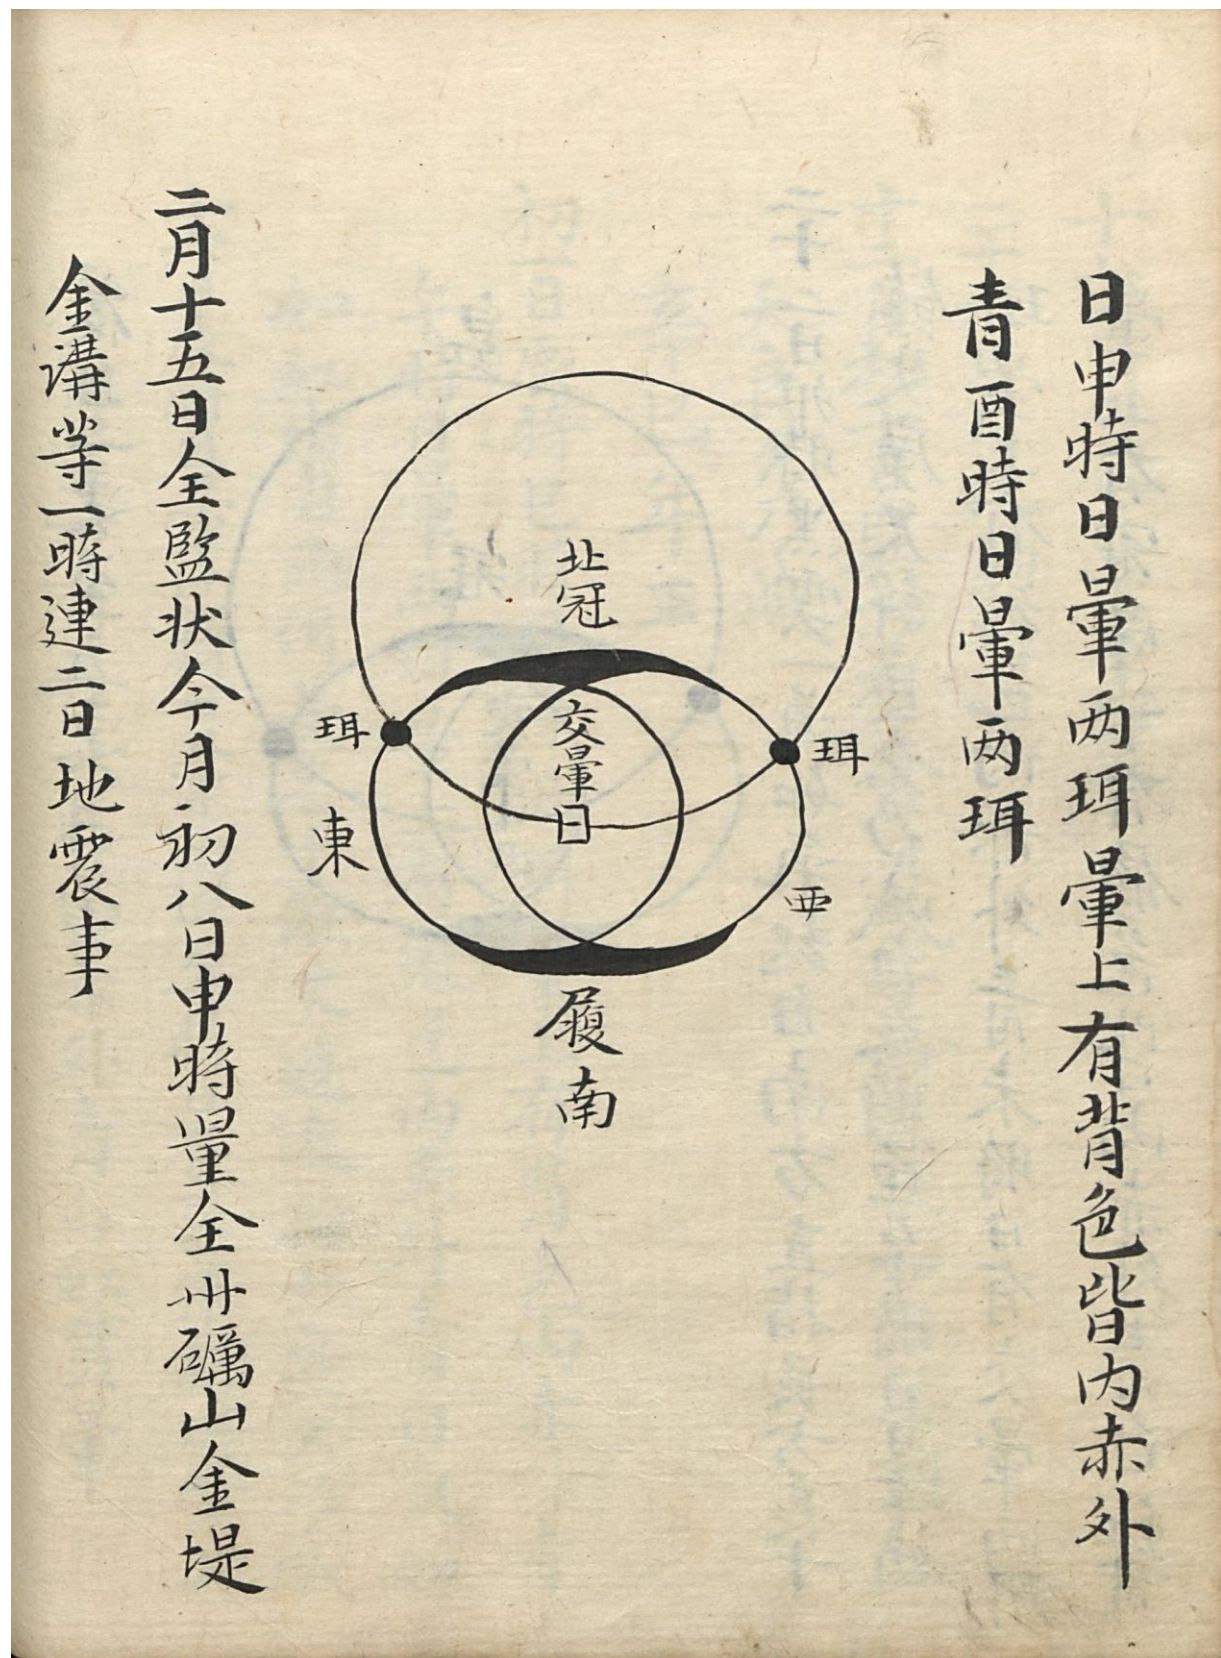 日申時日暈两珥暈上有背色皆内赤外
青酉時日暈两珥
北冠
交暈
日
珥
珥
東
西
履
南
二月十五日全監状今月初八日申時量全州礪山金堤
金溝等一時連二日地震事